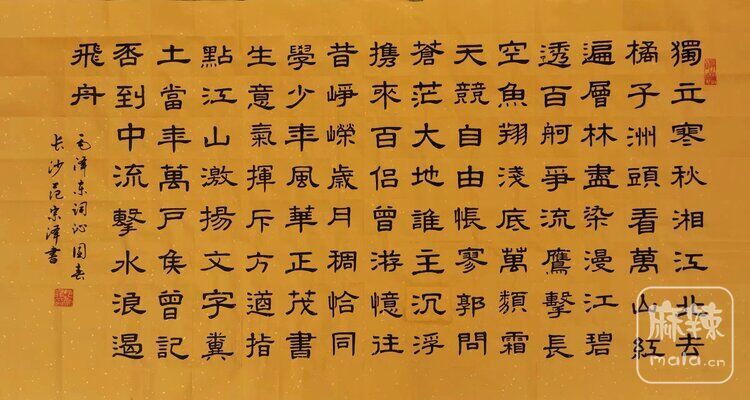 獨立寒秋湘江北去
橘子洲頭看萬山紅
遍層林盡染漫江碧
透百舸爭流鷹擊長
空魚翔淺底萬類霜
天競自由悵寥郭問
蒼茫大地誰主沉浮
携來百侶曾游憶往
昔崢嶸歲月稠恰同
學少年風華正茂書
生意氣揮斥方遒指
點江山激揚文字糞
土當年萬戶侯曾記
否到中流擊水浪遏
飛舟
毛澤东词沁园春
长沙范宗澤書
麻辣
mala.cn